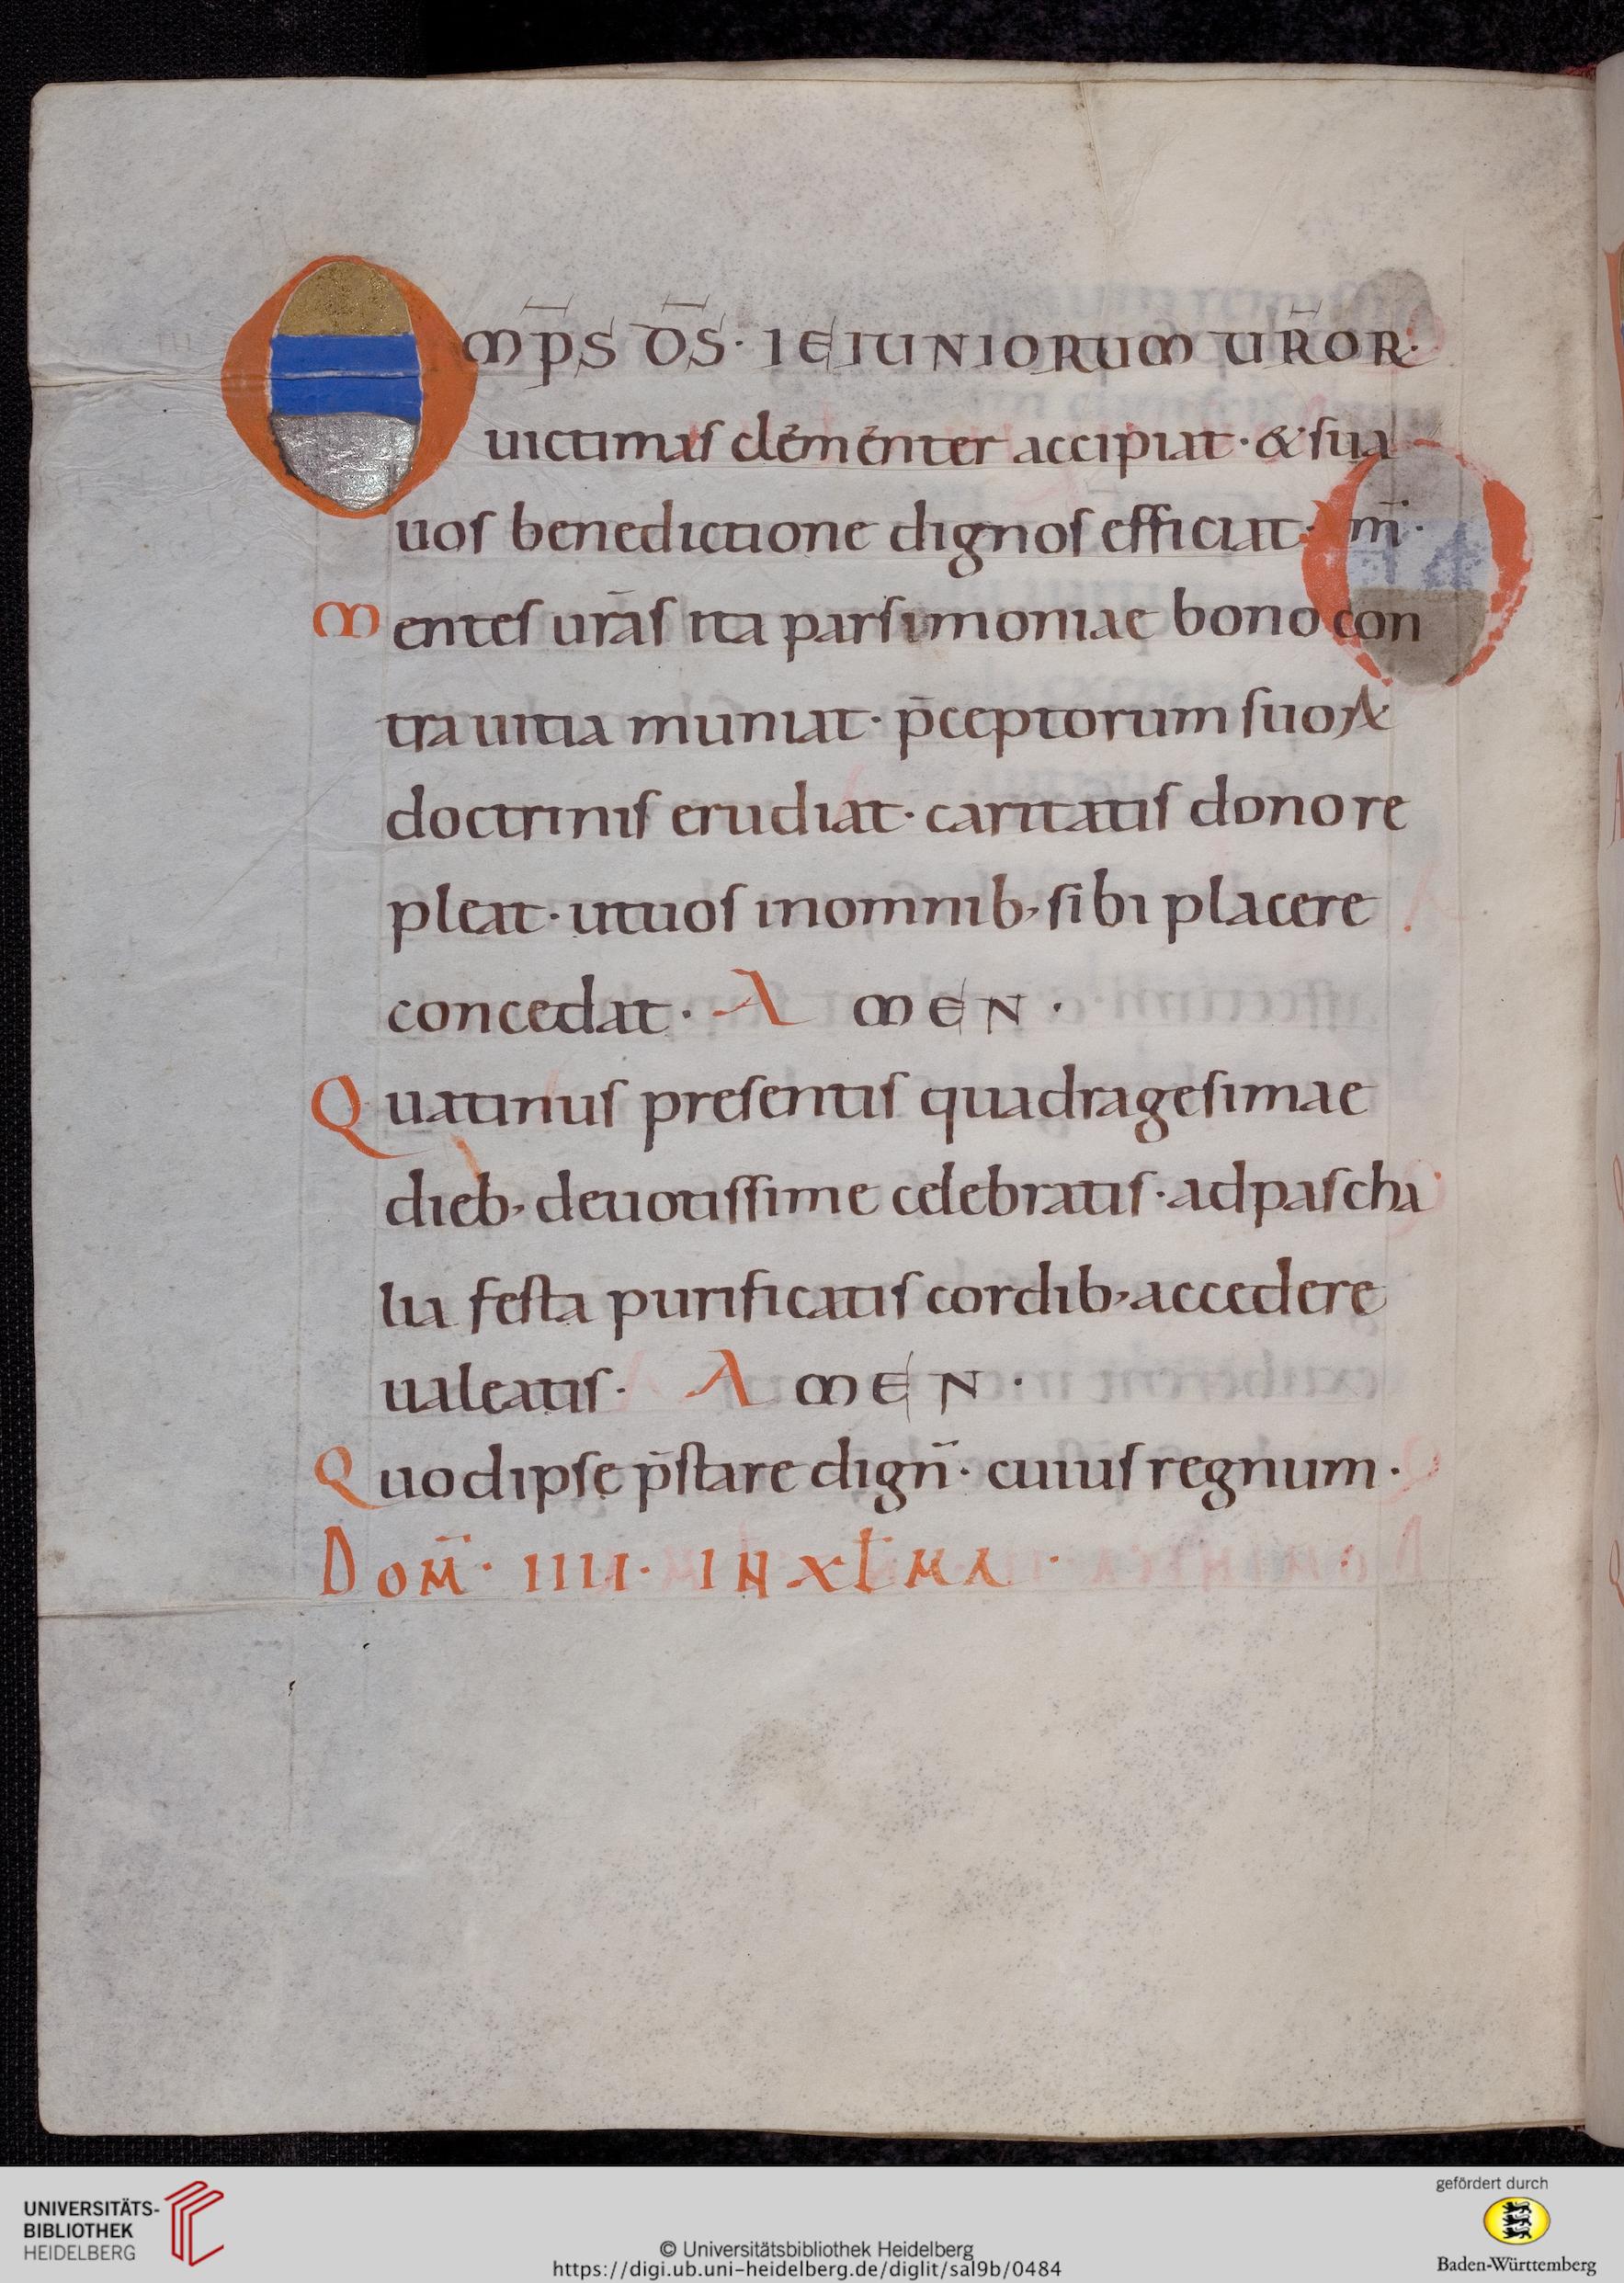 Omp̄s d̄s· ieiuniorum ur̄or·
uictimas clementer accipiat· & sua
uos benedictione dignos efficiat· m̄·
mentes urās ita parsimoniae bono con
tra uitia muniat· p̄ceptorum suoꝝ
doctrinis erudiat· caritatis dono re
pleat· utuos inomnib; sibi placere
concedat· AMEN·
Quatinus presentis quadragesimae
dieb; deuotissime celebratis· adpascha
lia festa purificatis cordib; accedere
ualeatis· AMEN·
Quodipse p̄stare dign̄· cuius regnum·
DOM̄· IIII· IN XL̄MA·
UNIVERSITÄTS-
BIBLIOTHEK
HEIDELBERG
© Universitätsbibliothek Heidelberg
https://digi.ub.uni-heidelberg.de/diglit/sal9b/0484
gefördert durch
Baden-Württemberg